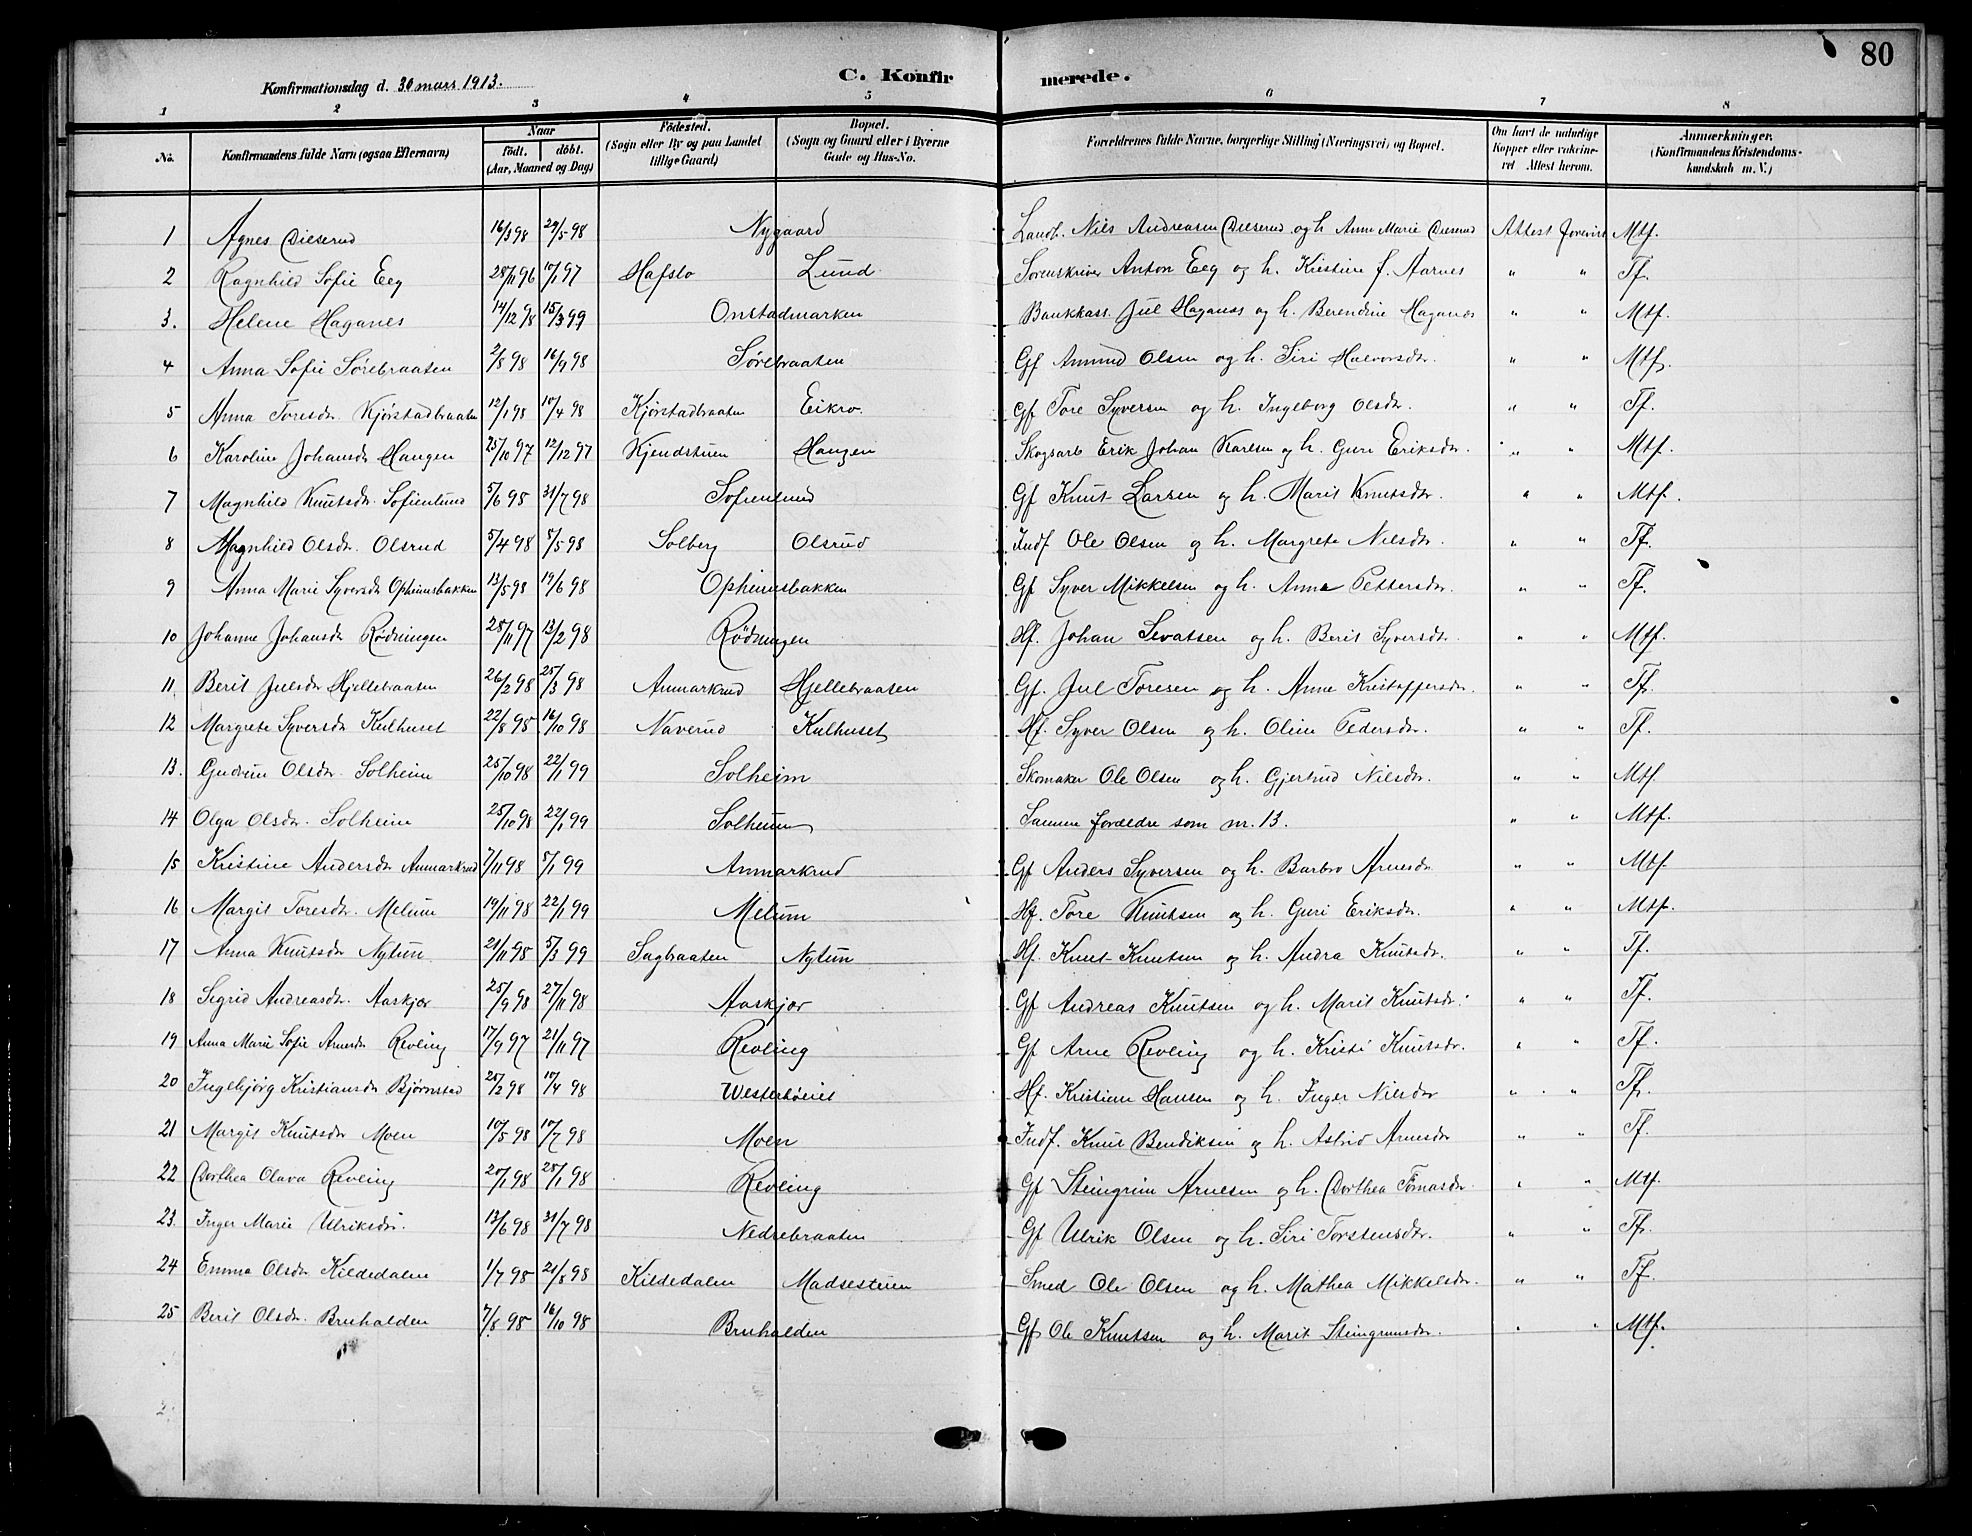 80
Konfirmationsdag d. 30 mars 1913. C. Konfirmerede.
1 2 3 4 5 6 7 8
No. Konfirmandens fulde Navn (ogsaa Efternavn) Naar født. døbt. (Aar, Maaned og Dag) Fødested. (Sogn eller By og paa Landet tillige Gaard) Bopæl. (Sogn og Gaard eller i Byerne Gade og Hus-No. Forældrenes fulde Navne, borgerlige Stilling (Næringsvei) og Bopæl. Om havt de naturlige Kopper eller vakcineret Attest herom. Anmærkninger. (Konfirmandens Kristendomskundskab m. V.)
1 Agnes Dieserud 16/3 98 29/5 98 Nygaard Landh. Nils Andreasen Dieserud og h. Anne Marie Dieserud Attest forevist Mtf.
2 Ragnhild Sofie Eeg 28/11 96 10/1 97 Hafslo Lund Sorenskriver Anton Eeg og h. Kristine f. Aarnes " " Tf.
3. Helene Haganes 14/12 98 15/3 99 Onstadmarken Bankkass. Jul Haganes og h. Berendine Haganes " " Mtf.
4 Anna Sofie Sørebraaten 2/8 98 16/9 98 Sørebraaten Gf Amund Olsen og h. Siri Halvorsdr. " " Mtf.
5 Anna Toresdr. Kjørstadbraaten 12/1 98 10/4 98 Kjørstadbraaten Eikro Gf Tore Syversen og h. Ingeborg Olsdr. " " Tf.
6 Karoline Johansdr Haugen 25/10 97 12/12 97 Kjendstuen Haugen Skogsarb Erik Johan Karlsen og h. Guri Eriksdr. " " Mtf.
7 Magnhild Knutsdr. Sofienlund 5/6 98 31/7 98 Sofienlund Gf Knut Larsen og h. Marit Knutsdr. " " Mtf.
8 Magnhild Olsdr. Olsrud 5/4 98 8/5 98 Solberg Olsrud Indf. Ole Olsen og h. Margrete Nilsdr. " " Tf.
9 Anna Marie Syversdr Opheimsbakken 13/5 98 19/6 98 Opheimsbakken Gf Syver Mikkelsen og h. Anna Pettersdr. " " Tf.
10 Johanne Johansdr Rødningen 28/11 97 13/2 98 Rødningen Hf. Johan Sevatsen og h. Berit Syversdr. " " Mtf.
11. Berit Julsdr Hjellebraaten 26/2 98 25/3 98 Anmarkrud Hjellebraaten Gf. Jul Toresen og h. Anne Kristoffersdr. " " Tf.
12 Margrete Syversdr Kulhuset 22/8 98 16/10 98 Naverud Kulhuset Hf. Syver Olsen og h. Oline Pedersdr. " " Tf.
13. Gudrun Olsdr. Solheim 25/10 98 22/1 99 Solheim Skomaker Ole Olsen og h. Gjertrud Nilsdr. " " Mtf.
14 Olga Olsdr. Solheim 25/10 98 22/1 99 Solheim Samme forældre som nr. 13. " " Mtf.
15 Kristine Andersdr Anmarkrud 7/11 98 8/1 99 Anmarkrud Gf Anders Syversen og h. Barbro Arnesdr " " Mtf.
16 Margit Toresdr. Melum 19/11 98 22/1 99 Melum Hf. Tore Knutsen og h. Guri Eriksdr. " " Mtf.
17 Anna Knutsdr Nytun 21/11 98 5/3 99 Sagbraaten Nytun Hf. Knut Knutsen og h. Andra Knutsdr. " " Tf.
18 Sigrid Andreasdr. Aaskjær 25/9 98 27/11 98 Aaskjær Gf Andreas Knutsen og h. Marit Knutsdr. " " Tf.
19 Anna Marie Sofie Arnesdr Revling 17/9 97 21/11 97 Revling Gf Arne Revling og h. Kristi Knutsdr. " " Tf.
20 Ingebjørg Kristiansdr Bjørnstad 25/2 98 10/4 98 Westerhøiet Hf. Kristian Hansen og h. Inger Nilsdr " " Tf.
21 Margit Knutsdr Moen 10/5 98 10/7 98 Moen Indf. Knut Bendiksen og h. Astrid Arnesdr " " Tf.
22 Dorthea Olava Revling 20/1 98 28/1 98 Revling Gf Steingrim Arnesen og h. Dorthea Tomasdr. " " Mtf.
23. Inger Marie Ulriksdr. 13/6 98 31/7 98 Nedrebraaten Gf Ulrik Olsen og h. Siri Torstensdr. " " Tf.
24 Emma Olsdr Kildedalen 1/7 98 21/8 98 Kildedalen Madsestuen Smed Ole Olsen og h. Mathea Mikkelsdr. " " Tf.
25 Berit Olsdr. Bruhalden 7/8 98 16/10 98 Bruhalden Gf Ole Knutsen og h. Marit Steingrimsdr. " " Mtf.